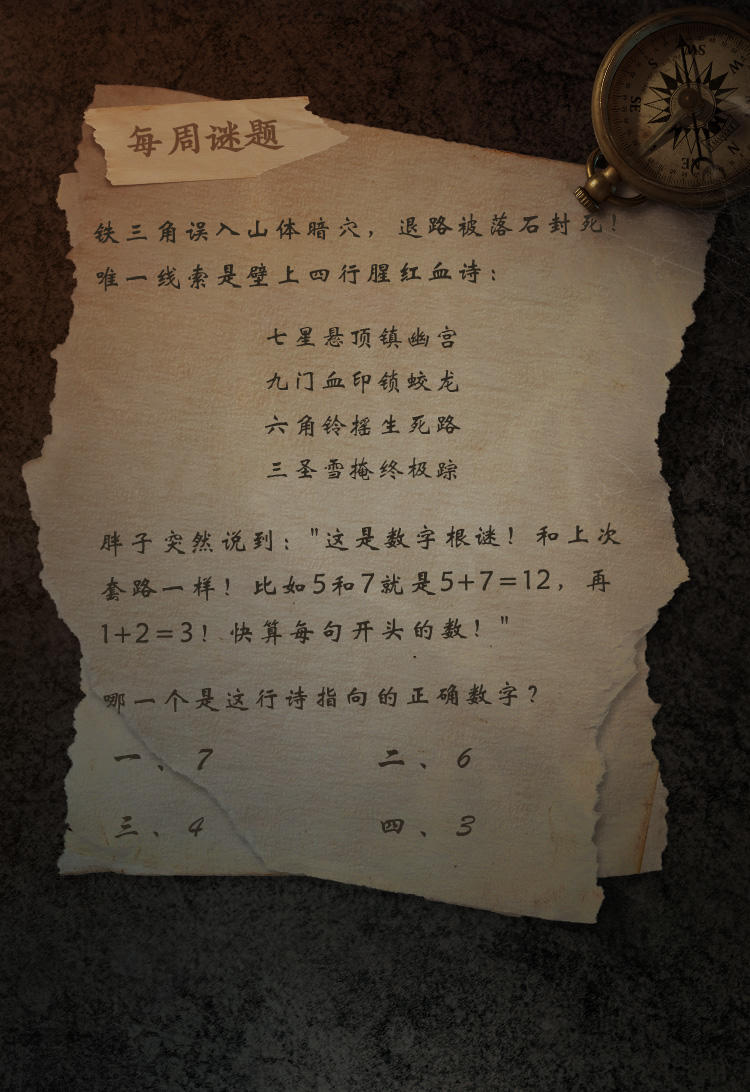 每周谜题
铁三角误入山体暗穴，退路被落石封死！
唯一线索是壁上四行腥红血诗：
七星悬顶镇幽宫
九门血印锁蛟龙
六角铃摇生死路
三圣雪掩终极踪
胖子突然说到："这是数字根谜！和上次
套路一样！比如5和7就是5+7=12，再
1+2=3！快算每句开头的数！"
哪一个是这行诗指向的正确数字？
一、7
二、6
三、4
四、3
SW
S
W
SE
N
NE